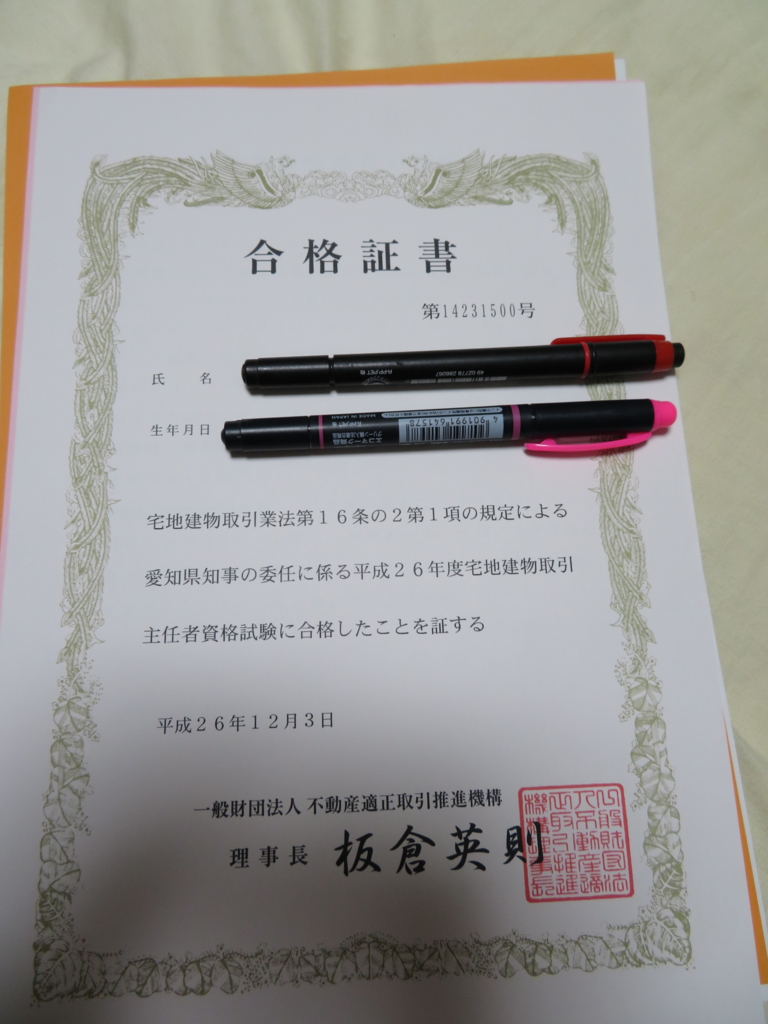 合格証書
第14231500号
氏名
生年月日
4901991641578
エコマーク商品
MADE IN JAPAN
宅地建物取引業法第１６条の２第１項の規定による
愛知県知事の委任に係る平成２６年度宅地建物取引
主任者資格試験に合格したことを証する
平成２６年１２月３日
一般財団法人 不動産適正取引推進機構
理事長 板倉英則